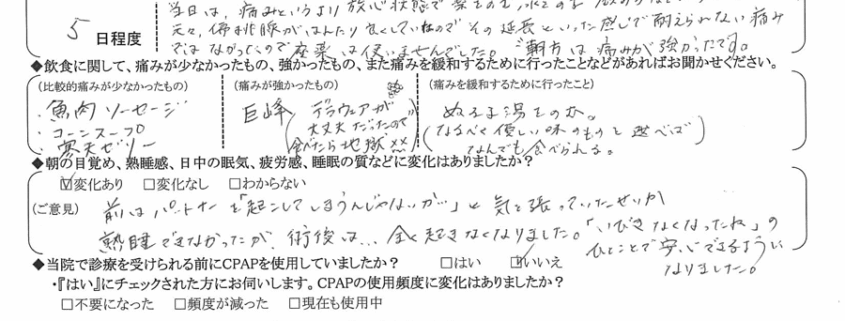 当日は、痛みというより放心状態で
5日程度
元々、偏扁桃腺がはれたり良くしていたのでその延長といった感じで耐えられない痛み
ではなかったので座薬は使いませんでした。ご朝方は痛みが強かったです。
◆飲食に関して、痛みが少なかったもの、強かったもの、また痛みを緩和するために行ったことなどがあればお聞かせください。
(比較的痛みが少なかったもの)
・魚肉ソーセージ
・コーンスープ
・寒天ゼリー
(痛みが強かったもの)
巨峰
(デラウェアが
大丈夫だったので
食べたら地獄××)
(痛みを緩和するために行ったこと)
ぬるま湯をのむ。
(なるべく優しい味のものを選べば
なんでも食べられる。)
◆朝の目覚め、熟睡感、日中の眠気、疲労感、睡眠の質などに変化はありましたか?
☑変化あり □変化なし □わからない
(ご意見)
前はパートナーを「起こしてしまうんじゃないか…」と気を張っていたせいか
熟睡できなかったが、術後は…全く起きなくなりました。「いびきなくなったね」の
ひとことで安心できるように
なりました。
◆当院で診療を受けられる前にCPAPを使用していましたか? □はい ☑いいえ
・『はい』にチェックされた方にお伺いします。CPAPの使用頻度に変化はありましたか?
□不要になった □頻度が減った □現在も使用中